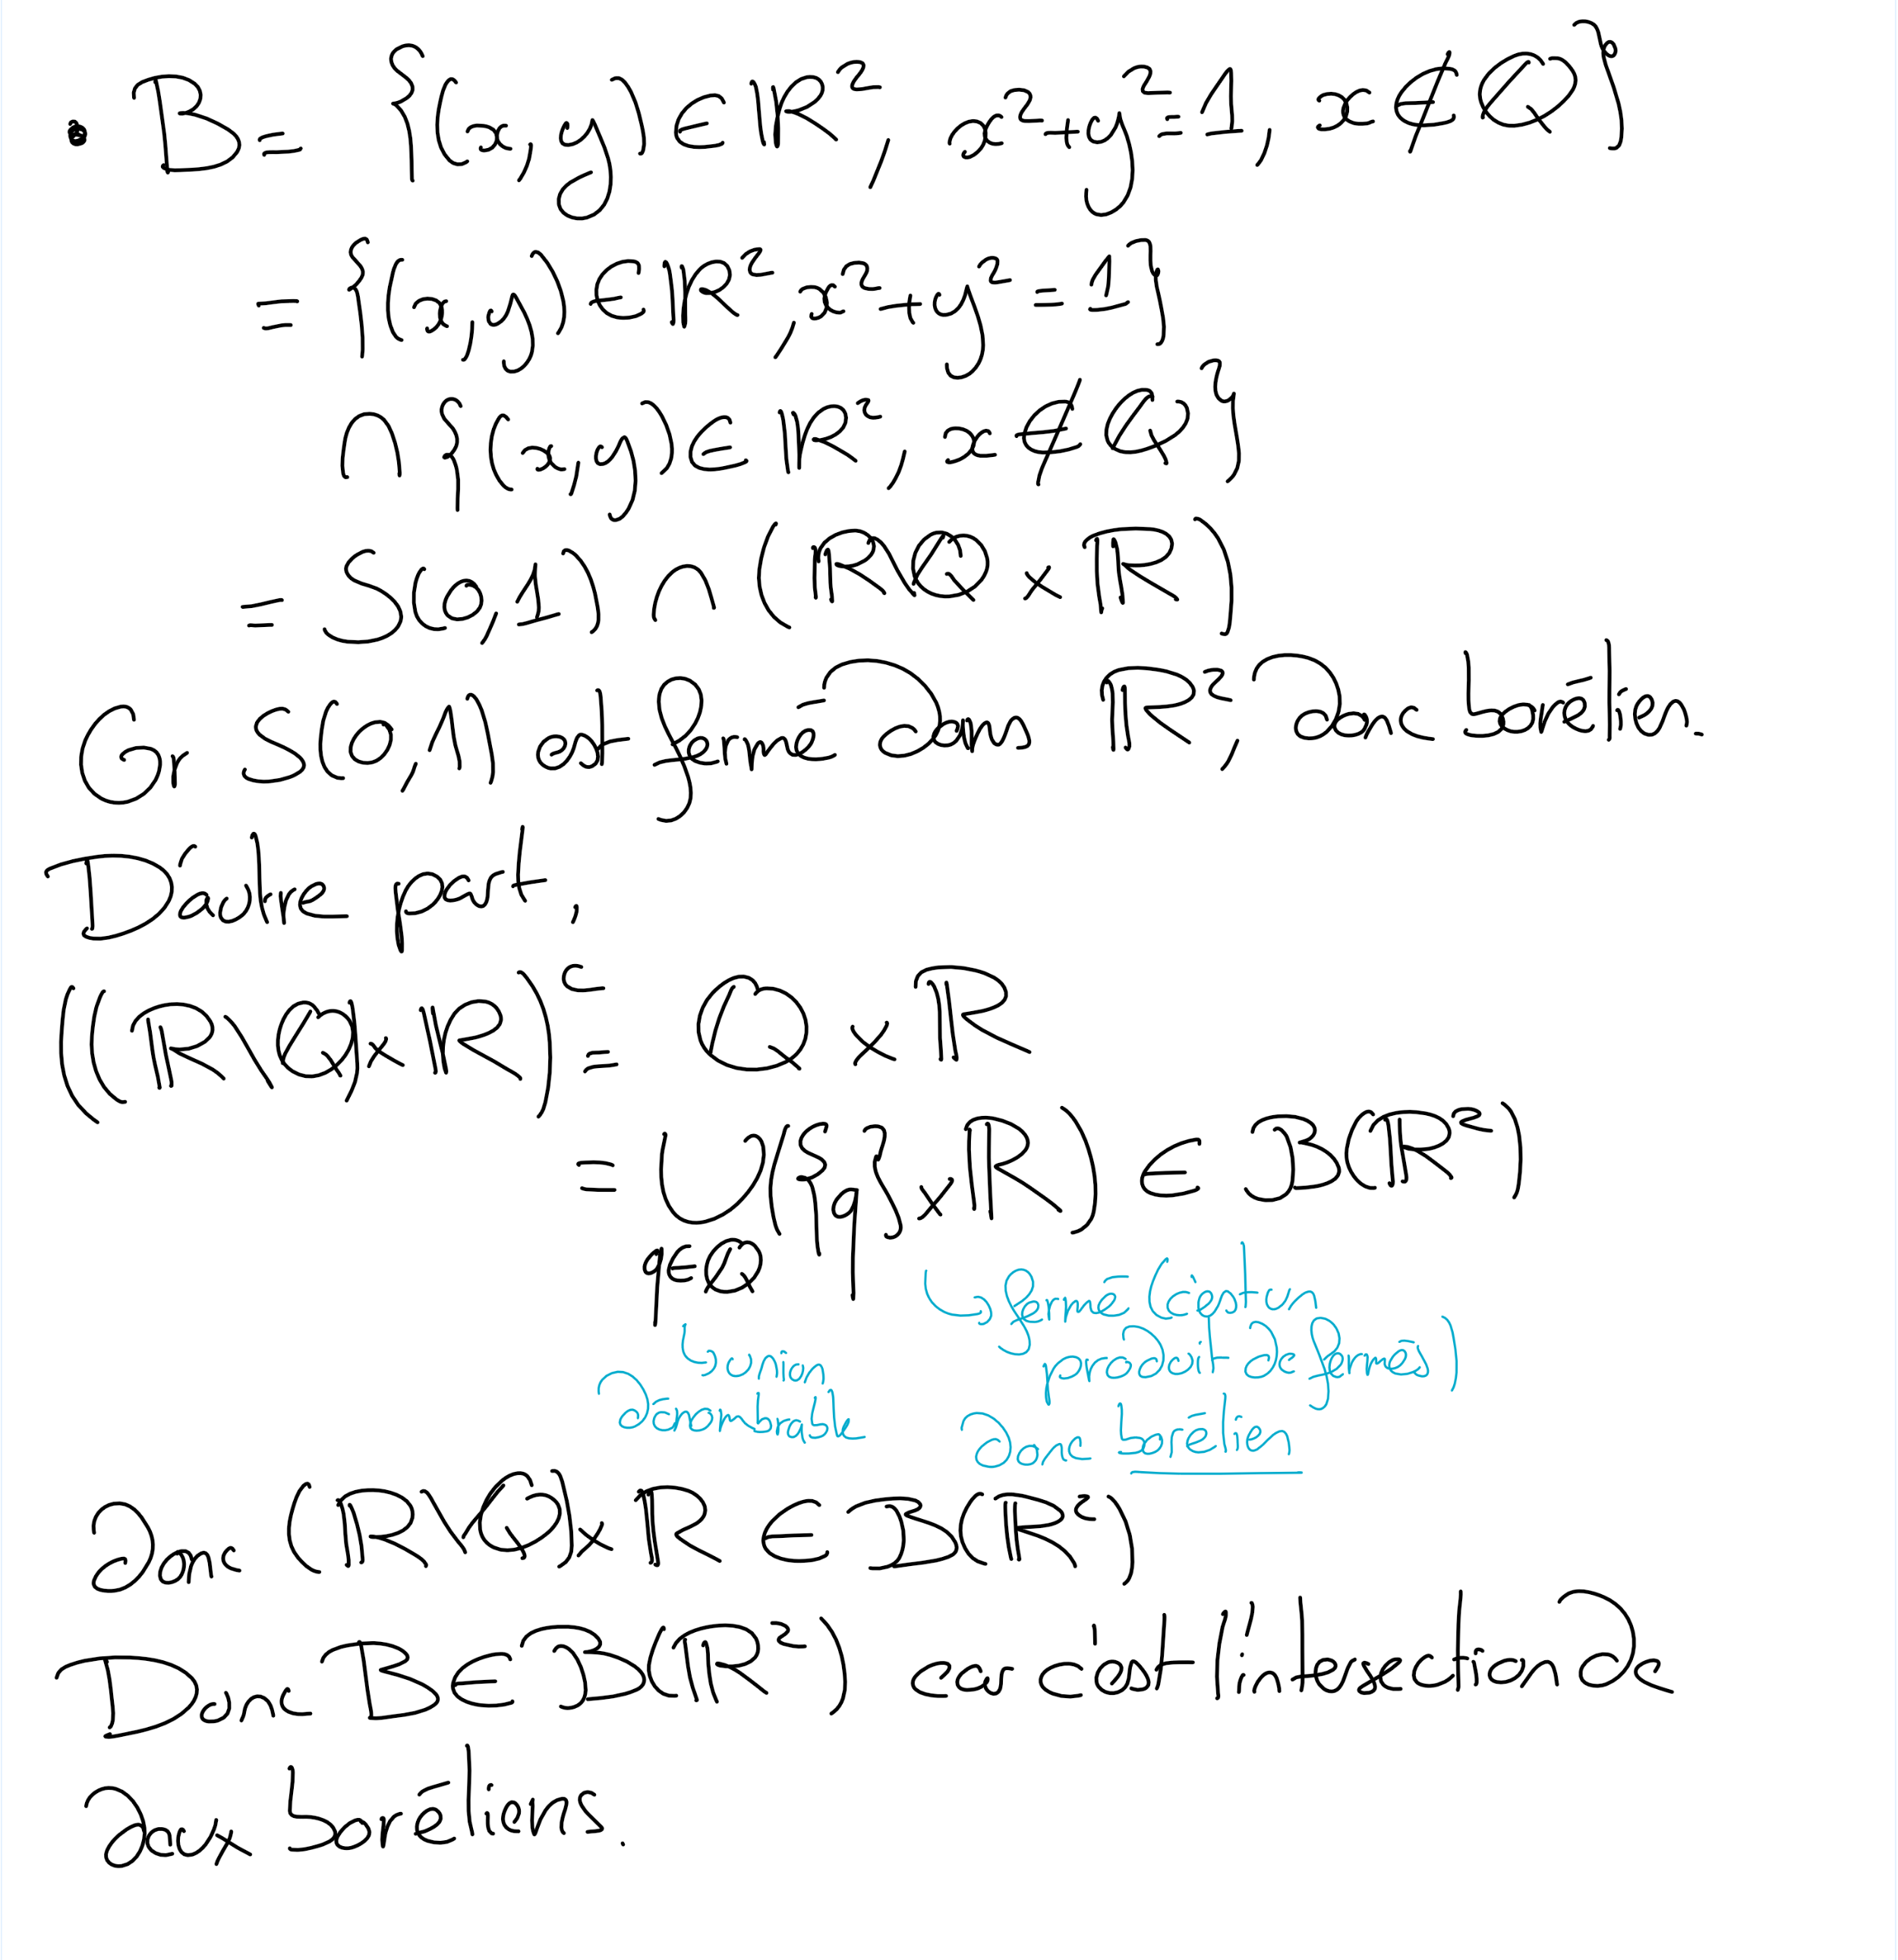 • B = {(x,y) ∈ ℝ², x²+y²=1, x ∉ ℚ}
= {(x,y) ∈ ℝ², x²+y² = 1}
∩ {(x,y) ∈ ℝ², x ∉ ℚ}
= S(0,1) ∩ (ℝ\ℚ × ℝ)
Or S(0,1) est fermé dans ℝ², donc borélien.
D'autre part,
((ℝ\ℚ)×ℝ)ᶜ = ℚ × ℝ
= ∪({q}×ℝ) ∈ B(ℝ²)
q∈ℚ
↳ fermé (c'est un
↳ union produit de fermés)
dénombrable donc borélien
donc (ℝ\ℚ)×ℝ ∈ B(ℝ²)
Donc B ∈ B(ℝ²) car c'est l'intersection de
deux boréliens.